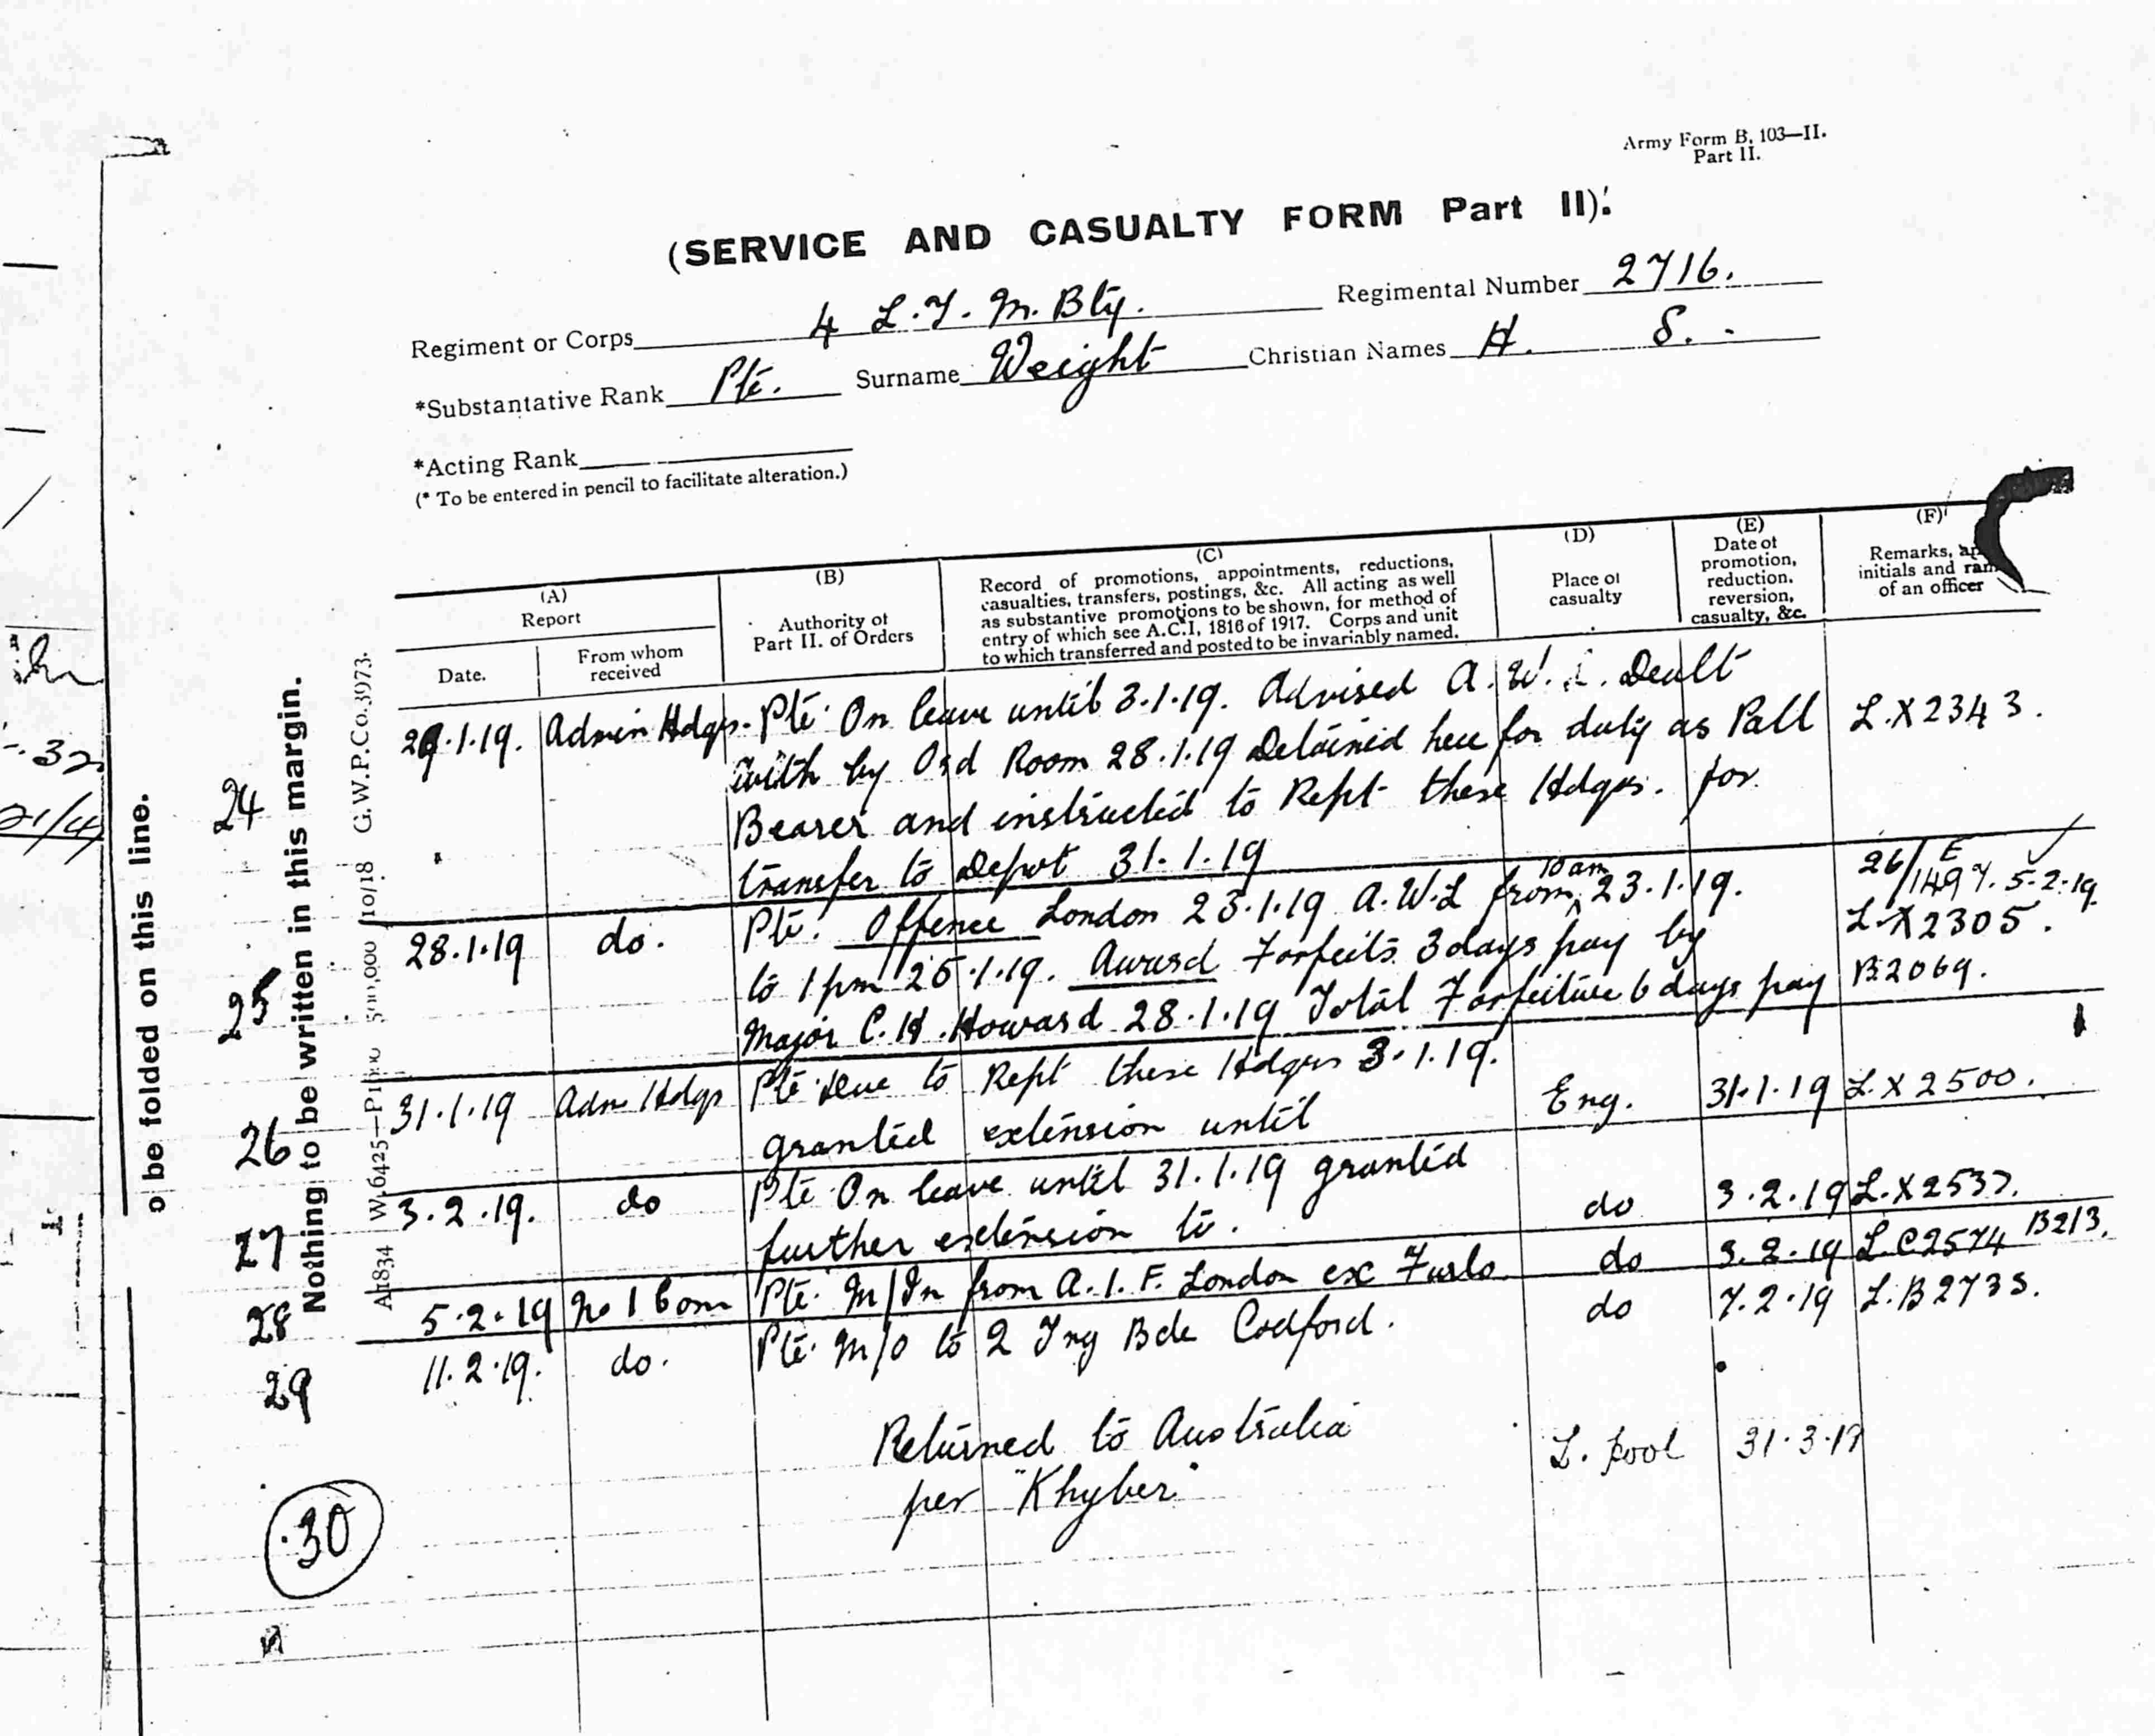 Army Form B. 103—II.
Part II.
(SERVICE AND CASUALTY FORM Part II).
Regiment or Corps 4 L.T.M. Bty. Regimental Number 2716.
*Substantative Rank Pte. Surname Weight Christian Names H. S.
*Acting Rank
(* To be entered in pencil to facilitate alteration.)
(A)
Report
Date.
From whom
received
(B)
Authority of
Part II. of Orders
(C)
Record of promotions, appointments, reductions,
casualties, transfers, postings, &c. All acting as well
as substantive promotions to be shown, for method of
entry of which see A.C.I, 1816 of 1917. Corps and unit
to which transferred and posted to be invariably named.
(D)
Place of
casualty
(E)
Date of
promotion,
reduction,
reversion,
casualty, &c.
(F)
Remarks,
initials and
of an officer
24 29.1.19. Admin Hdqs. Pte. On leave until 3.1.19. Advised A.W.L. Dealt
with by Ord Room 28.1.19 Detained here for duty as Pall L.X2343.
Bearer and instructed to Rept these Hdqrs. for
transfer to Depot 31.1.19
25 28.1.19 do. Pte. Offence London 23.1.19 A.W.L from 10 am 23.1.19. 26/E/1497. 5.2.19.
to 1 pm 25.1.19. Award Forfeits 3 days pay by L.X2305.
Major C.H. Howard 28.1.19 Total Forfeiture 6 days pay B2069.
26 31.1.19 Adm Hdqs Pte Due to Rept these Hdqrs 3.1.19.
granted extension until Eng. 31.1.19 L.X2500.
27 3.2.19. do Pte On leave until 31.1.19 granted
further extension to. do 3.2.19 L.X2537.
28 5.2.19 No 1 Com Pte. M/In from A.I.F. London exc Furlo do 3.2.19 L.C2574 B213.
29 11.2.19. do. Pte. M/O to 2 Tng Bde Codford. do 7.2.19 L.B2735.
30 Returned to Australia L. pool 31.3.19
per "Khyber"
o be folded on this line.
Nothing to be written in this margin.
10/18 G.W.P.Co.3973.
A1834 W.6425—
32
21/4